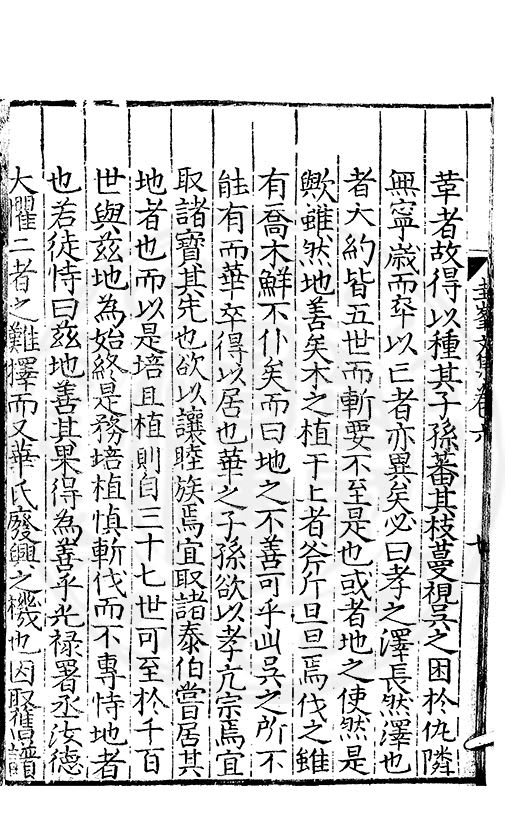 莘者故得以種其子孫蕃其枝蔓視吳之困於仇隣
無寧歲而卒以亡者亦異矣必曰孝之澤長然澤也
者大約皆五世而斬要不至是也或者地之使然是
歟雖然地善矣木之植于上者斧斤旦旦焉伐之雖
有喬木鮮不仆矣而曰地之不善可乎此吳之所不
能有而華卒得以居也華之子孫欲以孝亢宗焉宜
取諸寶其先也欲以讓睦族焉宜取諸泰伯嘗居其
地者也而以是培且植則自三十七世可至於千百
世與茲地為始終是務培植慎斬伐而不專恃地者
也若徒恃曰茲地善其果得為善乎光祿署丞汝德
大懼二者之難擇而又華氏廢興之機也因取舊譜